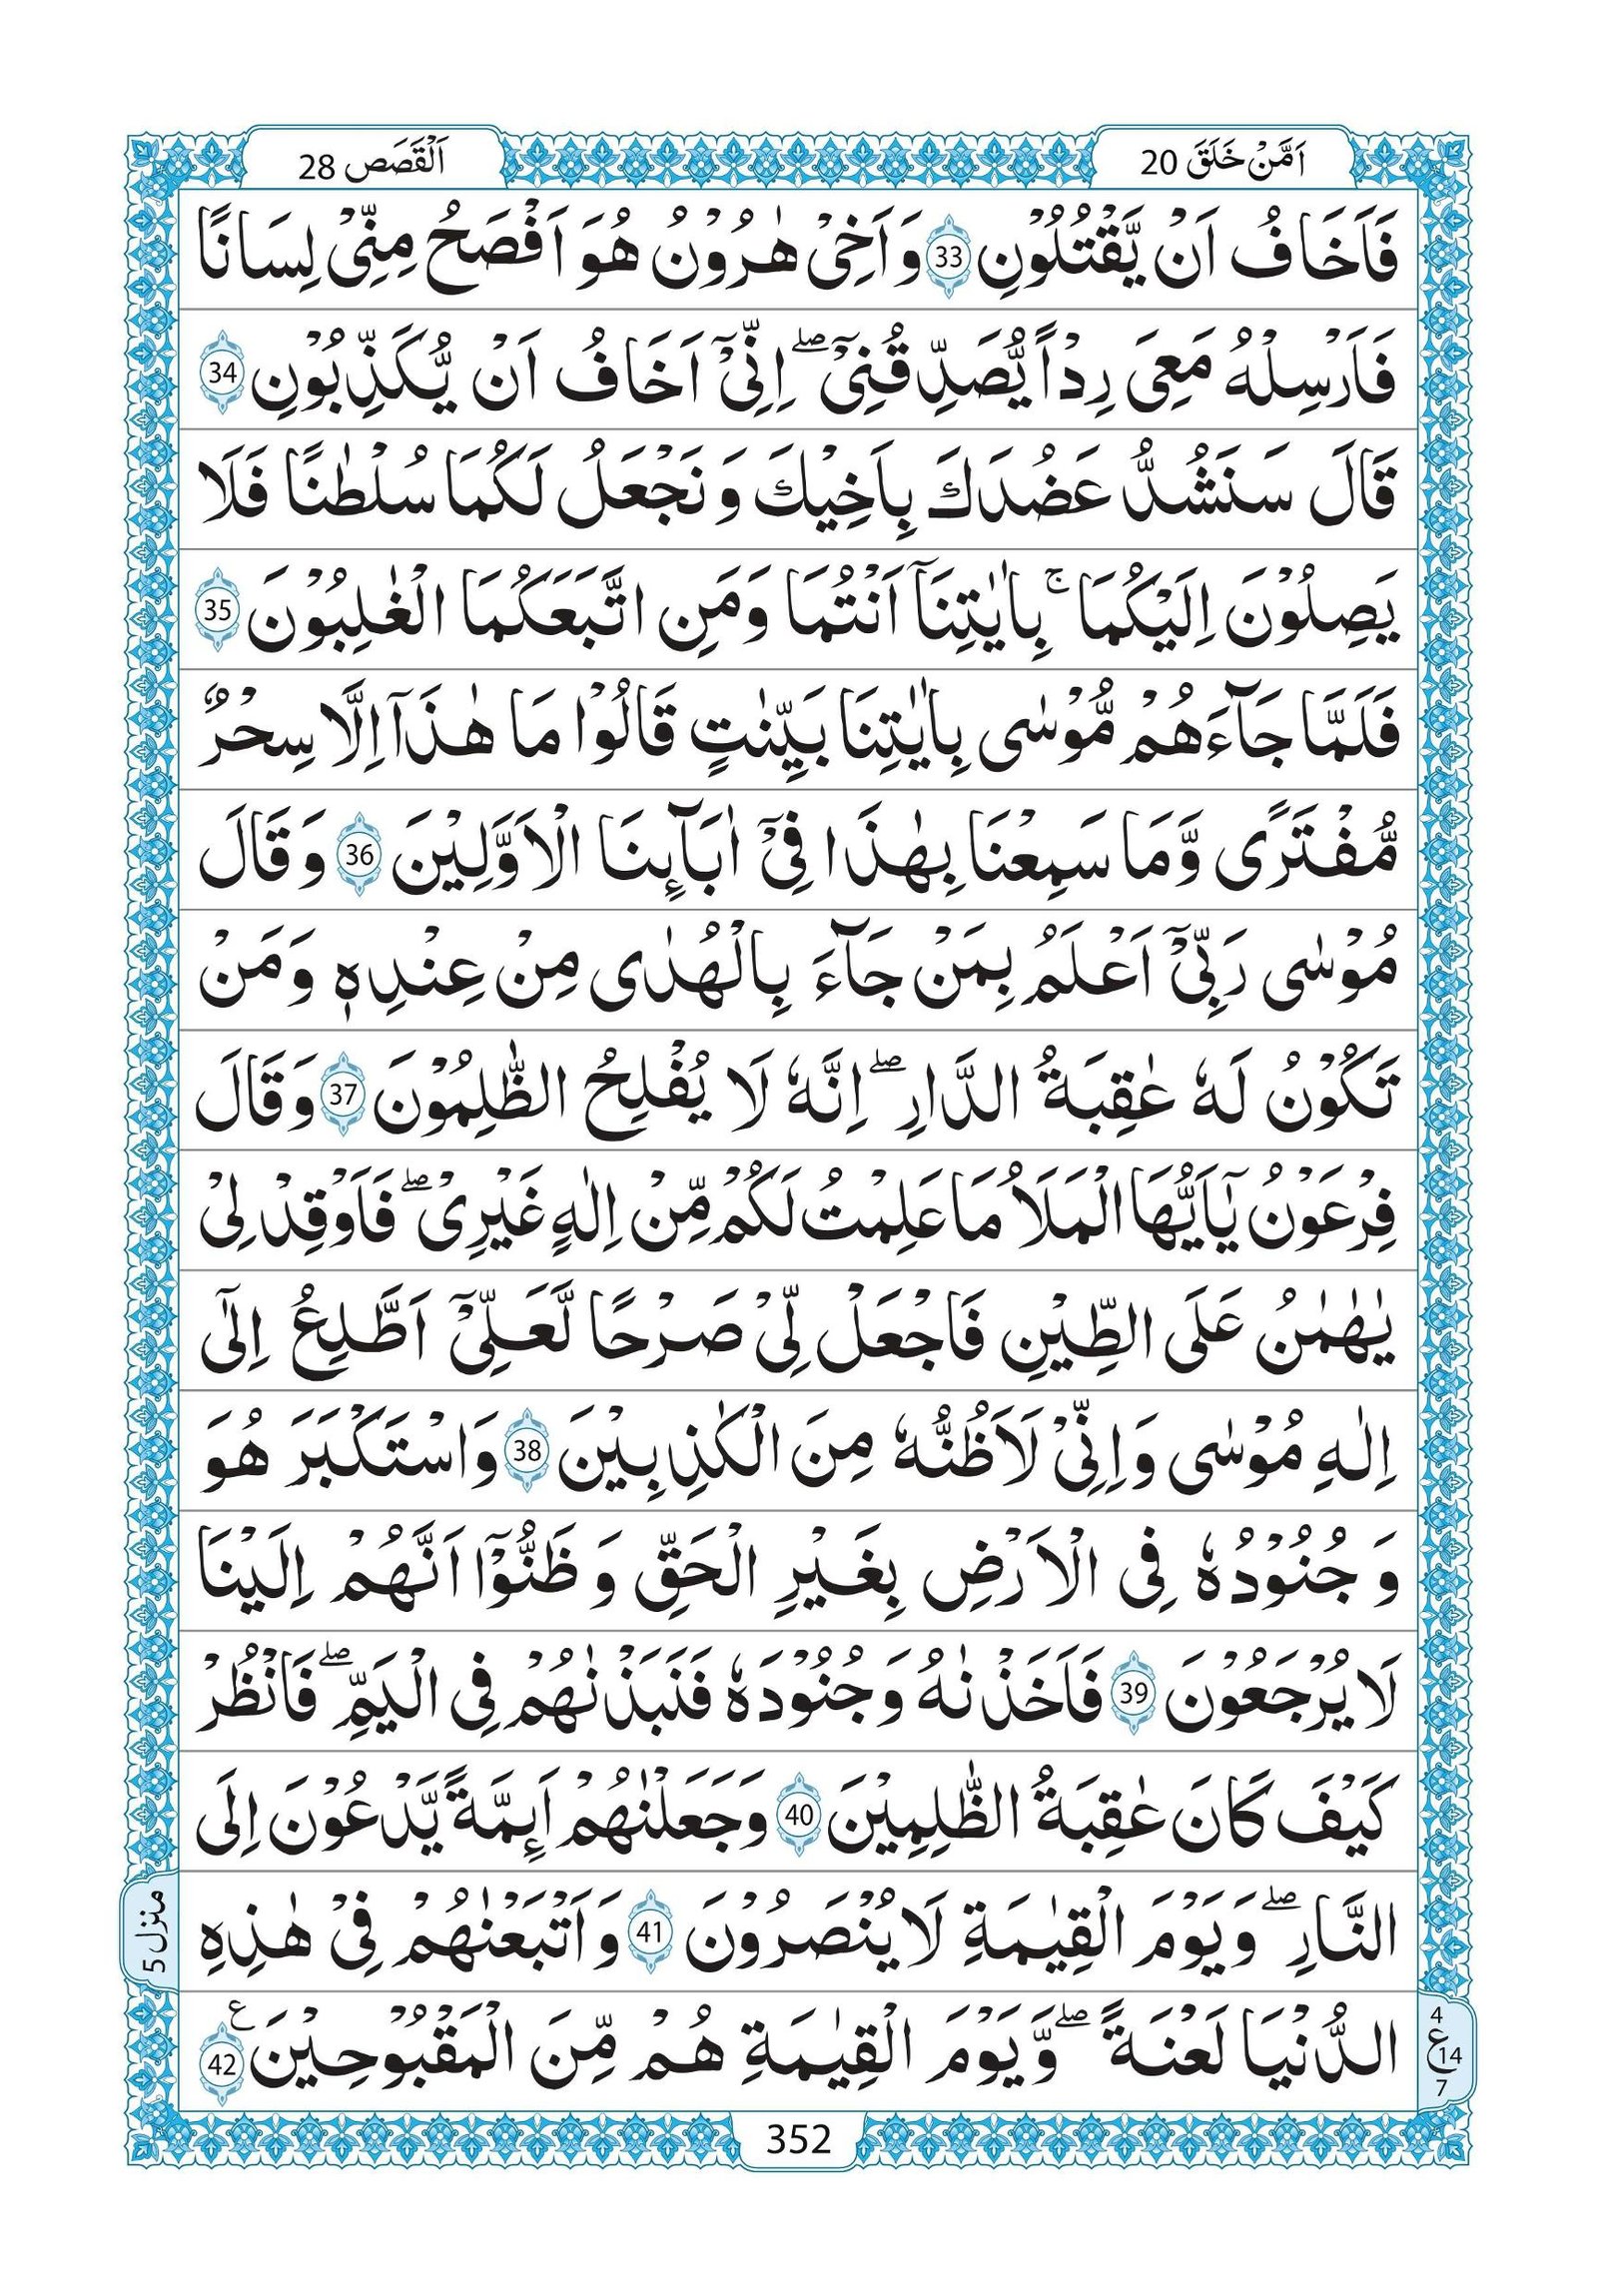 اَمَّنْ خَلَقَ 20
اَلْقَصَص 28
فَاَخَافُ اَنْ يَّقْتُلُوْنِ 33 وَاَخِىْ هٰرُوْنُ هُوَ اَفْصَحُ مِنِّىْ لِسَانًا
فَاَرْسِلْهُ مَعِىَ رِدْاً يُّصَدِّقُنِىْٓ ۖ اِنِّىْٓ اَخَافُ اَنْ يُّكَذِّبُوْنِ 34
قَالَ سَنَشُدُّ عَضُدَكَ بِاَخِيْكَ وَ نَجْعَلُ لَكُمَا سُلْطٰنًا فَلَا
يَصِلُوْنَ اِلَيْكُمَا ۚ بِاٰيٰتِنَآ اَنْتُمَا وَمَنِ اتَّبَعَكُمَا الْغٰلِبُوْنَ 35
فَلَمَّا جَآءَهُمْ مُّوْسٰى بِاٰيٰتِنَا بَيِّنٰتٍ قَالُوْا مَا هٰذَآ اِلَّا سِحْرٌ
مُّفْتَرًى وَّمَا سَمِعْنَا بِهٰذَا فِىْٓ اٰبَآئِنَا الْاَوَّلِيْنَ 36 وَقَالَ
مُوْسٰى رَبِّىْٓ اَعْلَمُ بِمَنْ جَآءَ بِالْهُدٰى مِنْ عِنْدِهٖ وَمَنْ
تَكُوْنُ لَهٗ عٰقِبَةُ الدَّارِ ۖ اِنَّهٗ لَا يُفْلِحُ الظّٰلِمُوْنَ 37 وَقَالَ
فِرْعَوْنُ يٰٓاَيُّهَا الْمَلَاُ مَا عَلِمْتُ لَكُمْ مِّنْ اِلٰهٍ غَيْرِىْ ۖ فَاَوْقِدْ لِىْ
يٰهٰمٰنُ عَلَى الطِّيْنِ فَاجْعَلْ لِّىْ صَرْحًا لَّعَلِّىْٓ اَطَّلِعُ اِلٰٓى
اِلٰهِ مُوْسٰى وَاِنِّىْ لَاَظُنُّهٗ مِنَ الْكٰذِبِيْنَ 38 وَاسْتَكْبَرَ هُوَ
وَ جُنُوْدُهٗ فِى الْاَرْضِ بِغَيْرِ الْحَقِّ وَ ظَنُّوْٓا اَنَّهُمْ اِلَيْنَا
لَا يُرْجَعُوْنَ 39 فَاَخَذْنٰهُ وَ جُنُوْدَهٗ فَنَبَذْنٰهُمْ فِى الْيَمِّ ۖ فَانْظُرْ
كَيْفَ كَانَ عٰقِبَةُ الظّٰلِمِيْنَ 40 وَجَعَلْنٰهُمْ اَئِمَّةً يَّدْعُوْنَ اِلَى
النَّارِ ۖ وَيَوْمَ الْقِيٰمَةِ لَا يُنْصَرُوْنَ 41 وَاَتْبَعْنٰهُمْ فِىْ هٰذِهِ
الدُّنْيَا لَعْنَةً ۖ وَّيَوْمَ الْقِيٰمَةِ هُمْ مِّنَ الْمَقْبُوْحِيْنَ ع 42
منزل 5
4
ع 14
7
352